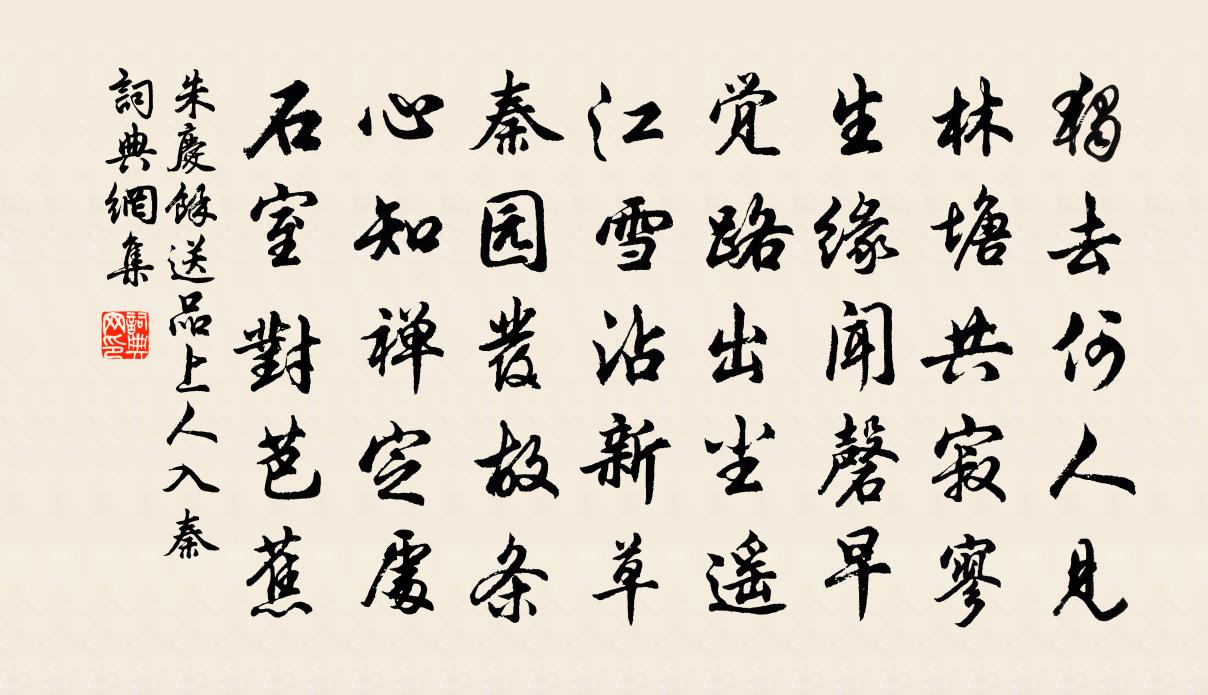 獨去何人見
林塘共寂寥
生缘闻磬早
觉路出尘遥
江雪沾新草
秦园发故条
心知禅定處
石室對芭蕉
朱慶餘送品上人入秦
詞典網集
詞典网印